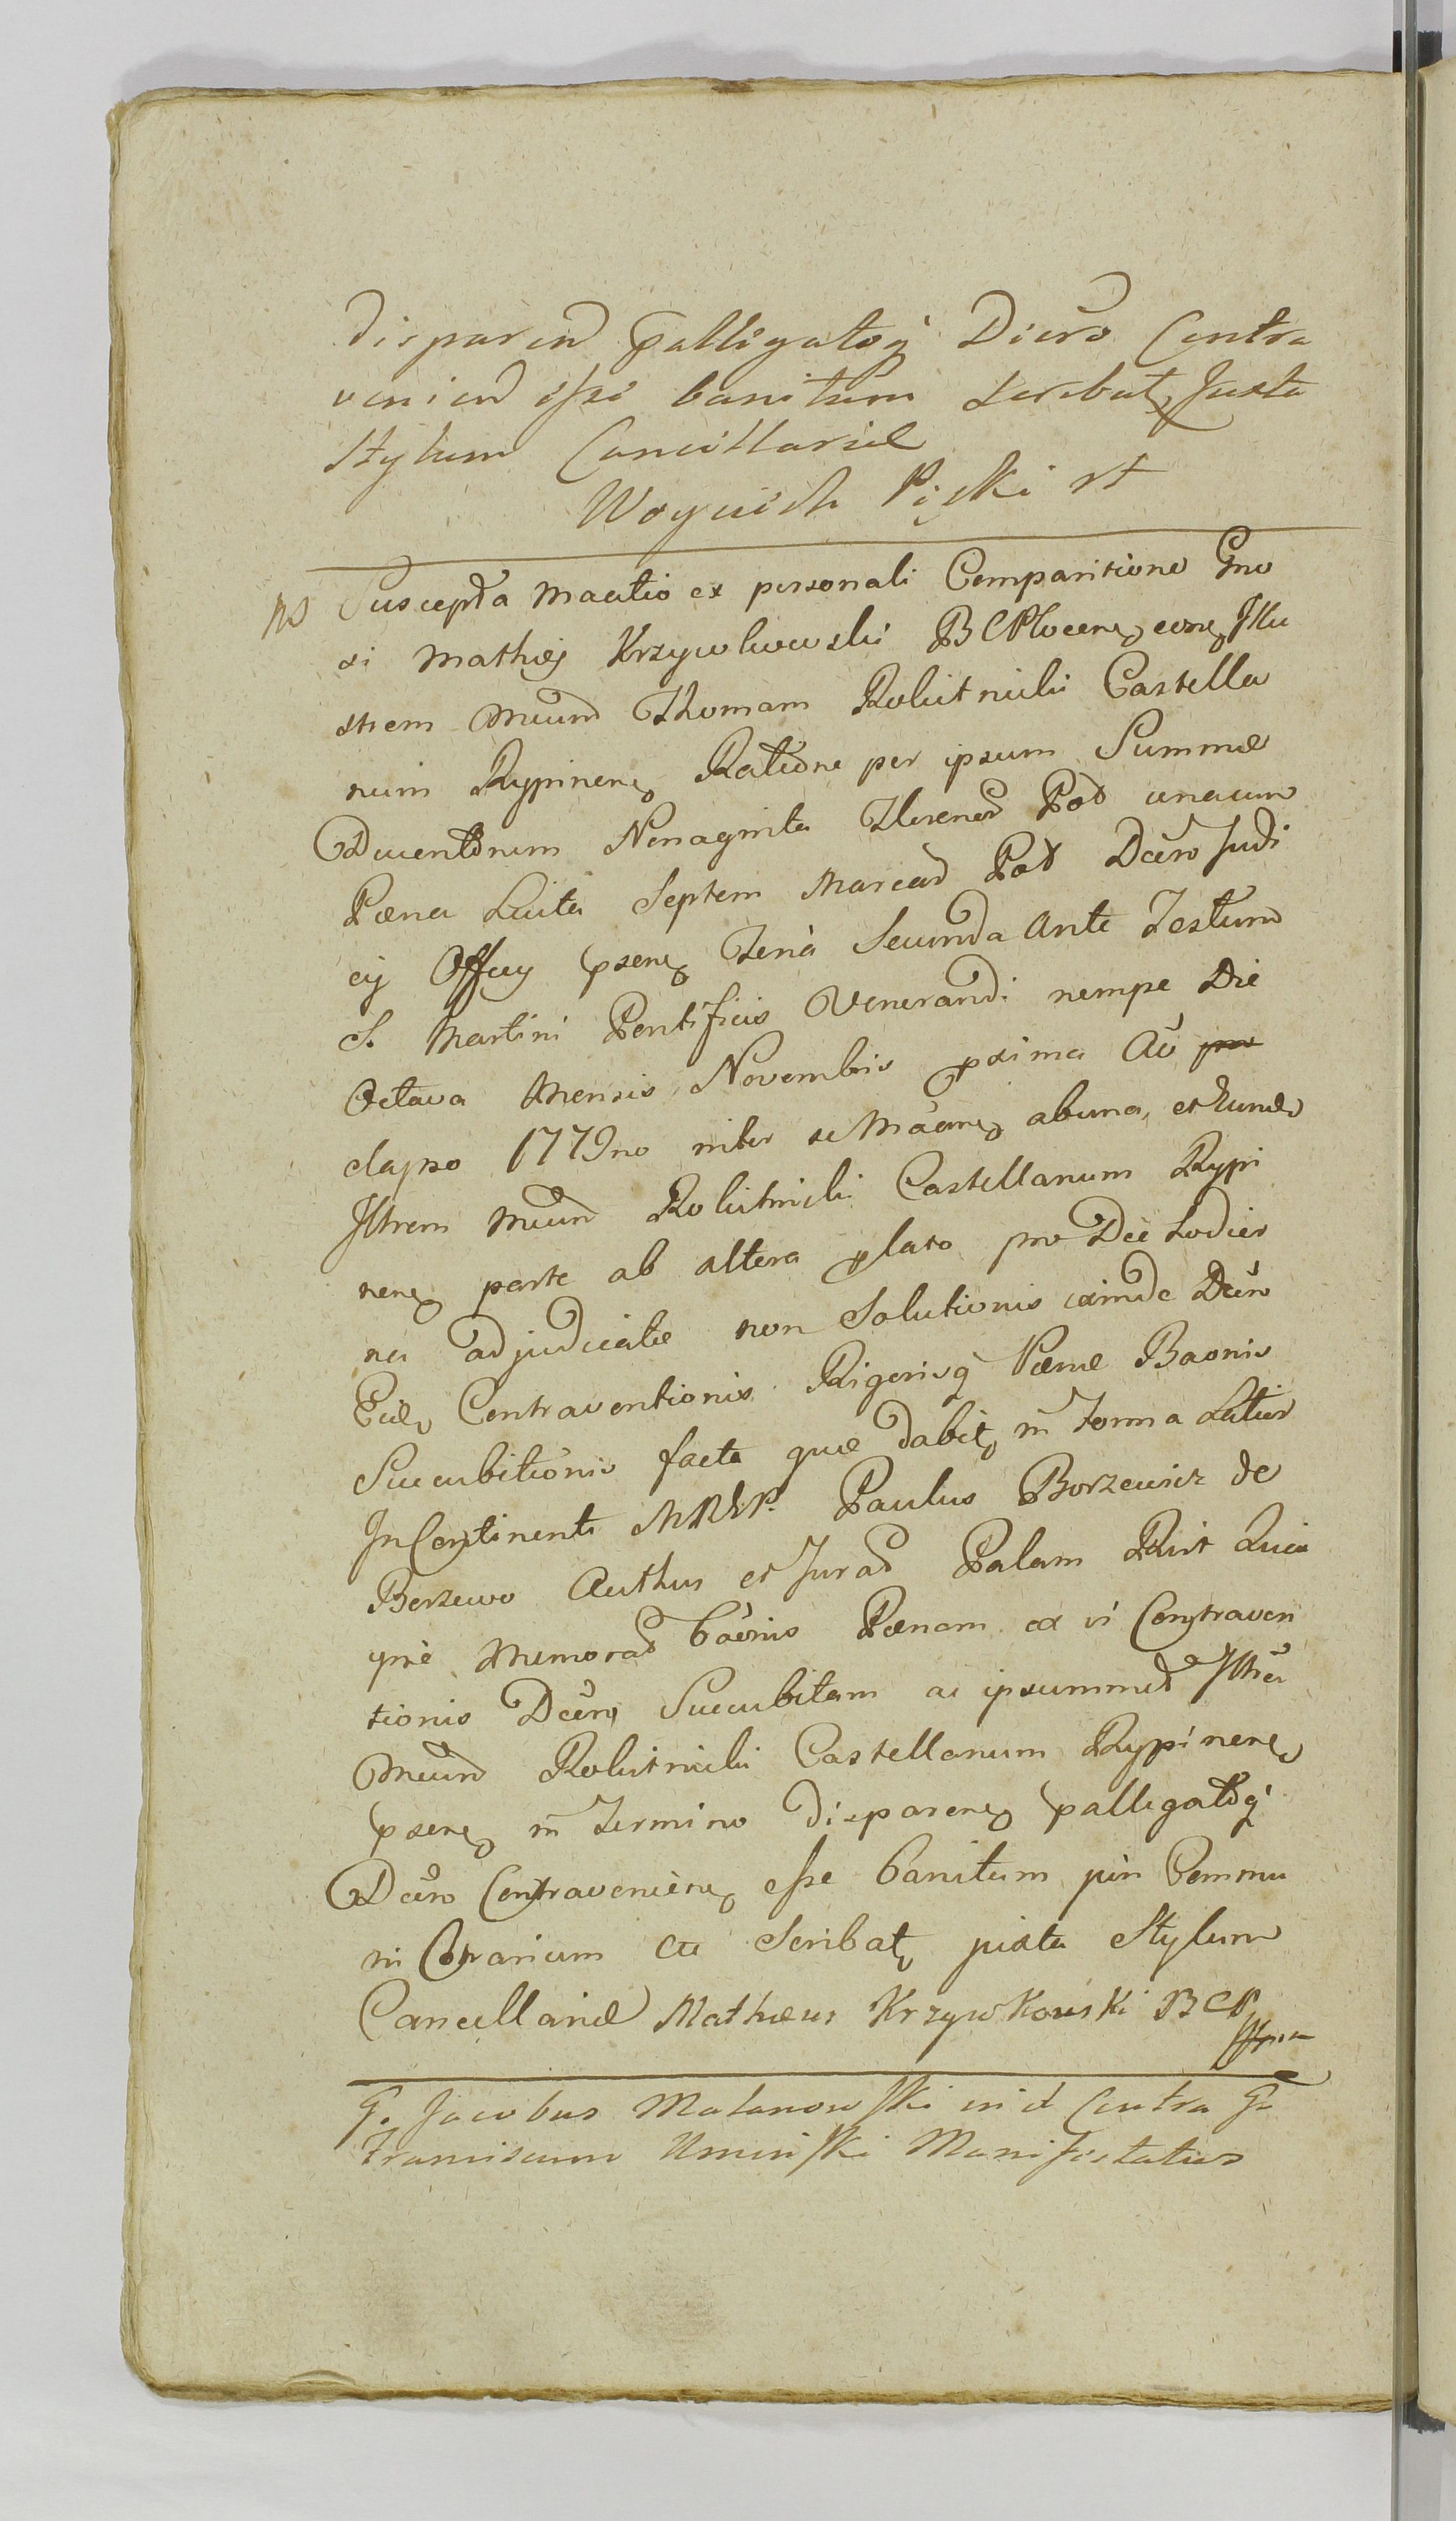 disparend palligatoq Dicro Contra
venien esse banitum scribat Juxta
Stylum Cancellariæ
Woyciech Piski
NS Suscepta Mantio ex personali Comparitione Gno
si Mathæi Krzywkowski BCPlocen, Illu
strem Mcum Thomam Rokitnicki Castella
num Rypinen Ratione per ipsum Summæ
Ducentorum Nonaginta Florenor Pol unacum
Pœna Luita Septem Marcar Pol Dcro Judi
cij Officij psen Feria Secunda Ante Festum
S. Martini Pontificis Venerandi nempe Die
Octava Mensis Novembris pxima Ao
elapso 1779no inter se Macnen abuna, et Eund
Illrem Mcum Rokitnicki Castellanum Rypi
nen parte ab altera plato pro Die hodier
na adjudicatæ non Solutionis eximde Dcro
Contraventionis Rigorisq Pœnæ Baonis
Succubitionis facta quæ dabit in Forma Latior
In Continenti MRSP. Paulus Borzewicz de
Borzewo Authus et Jurad Palam Rist
quie Memorad baonis Pœnam ex vi Contraven
tionis Dcro Succubitam ac ipsummet Illrem
Mcum Rokitnicki Castellanum Rypinen
psen in Termino disparen palligatoq
Dcro Contravenien esse banitum pin Commu
ni Contrarium Scribat juxta Stylum
Cancellariæ Mathæus Krzywkowski BCP
G. Jacobus Malanowski in et Contra G
Franciscum Uminski Manifestatur